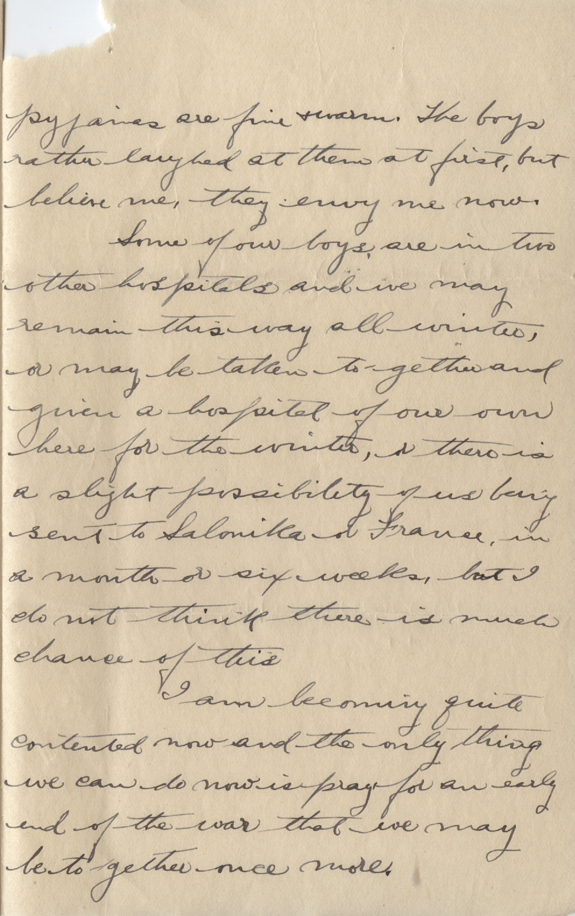 pyjamas are fine & warm. The boys
rather laughed at them at first, but
believe me, they envy me now.
Some of our boys, are in two
other hospitals and we may
remain this way all winter,
or may be taken to-gether and
given a hospital of our own
here for the winter, or there is
a slight possibility of us being
sent to Salonika or France, in
a month or six weeks, but I
do not think there is much
chance of this
I am becoming quite
contented now and the only thing
we can do now is pray for an early
end of the war that we may
be to gether once more.